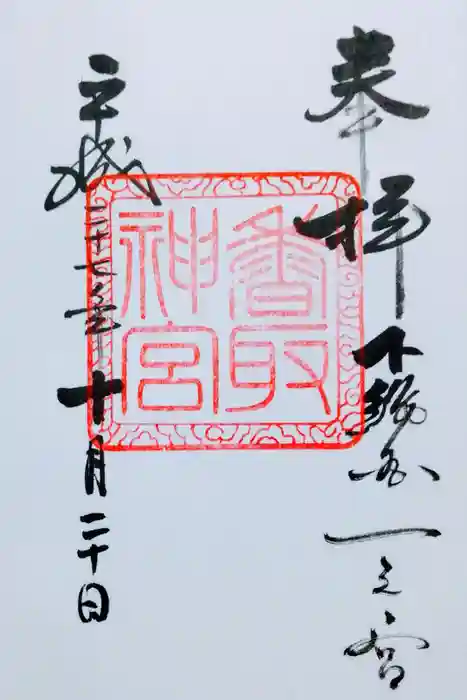 奉拝 下総国一之宮
香取神宮
平成二十七年十月二十日